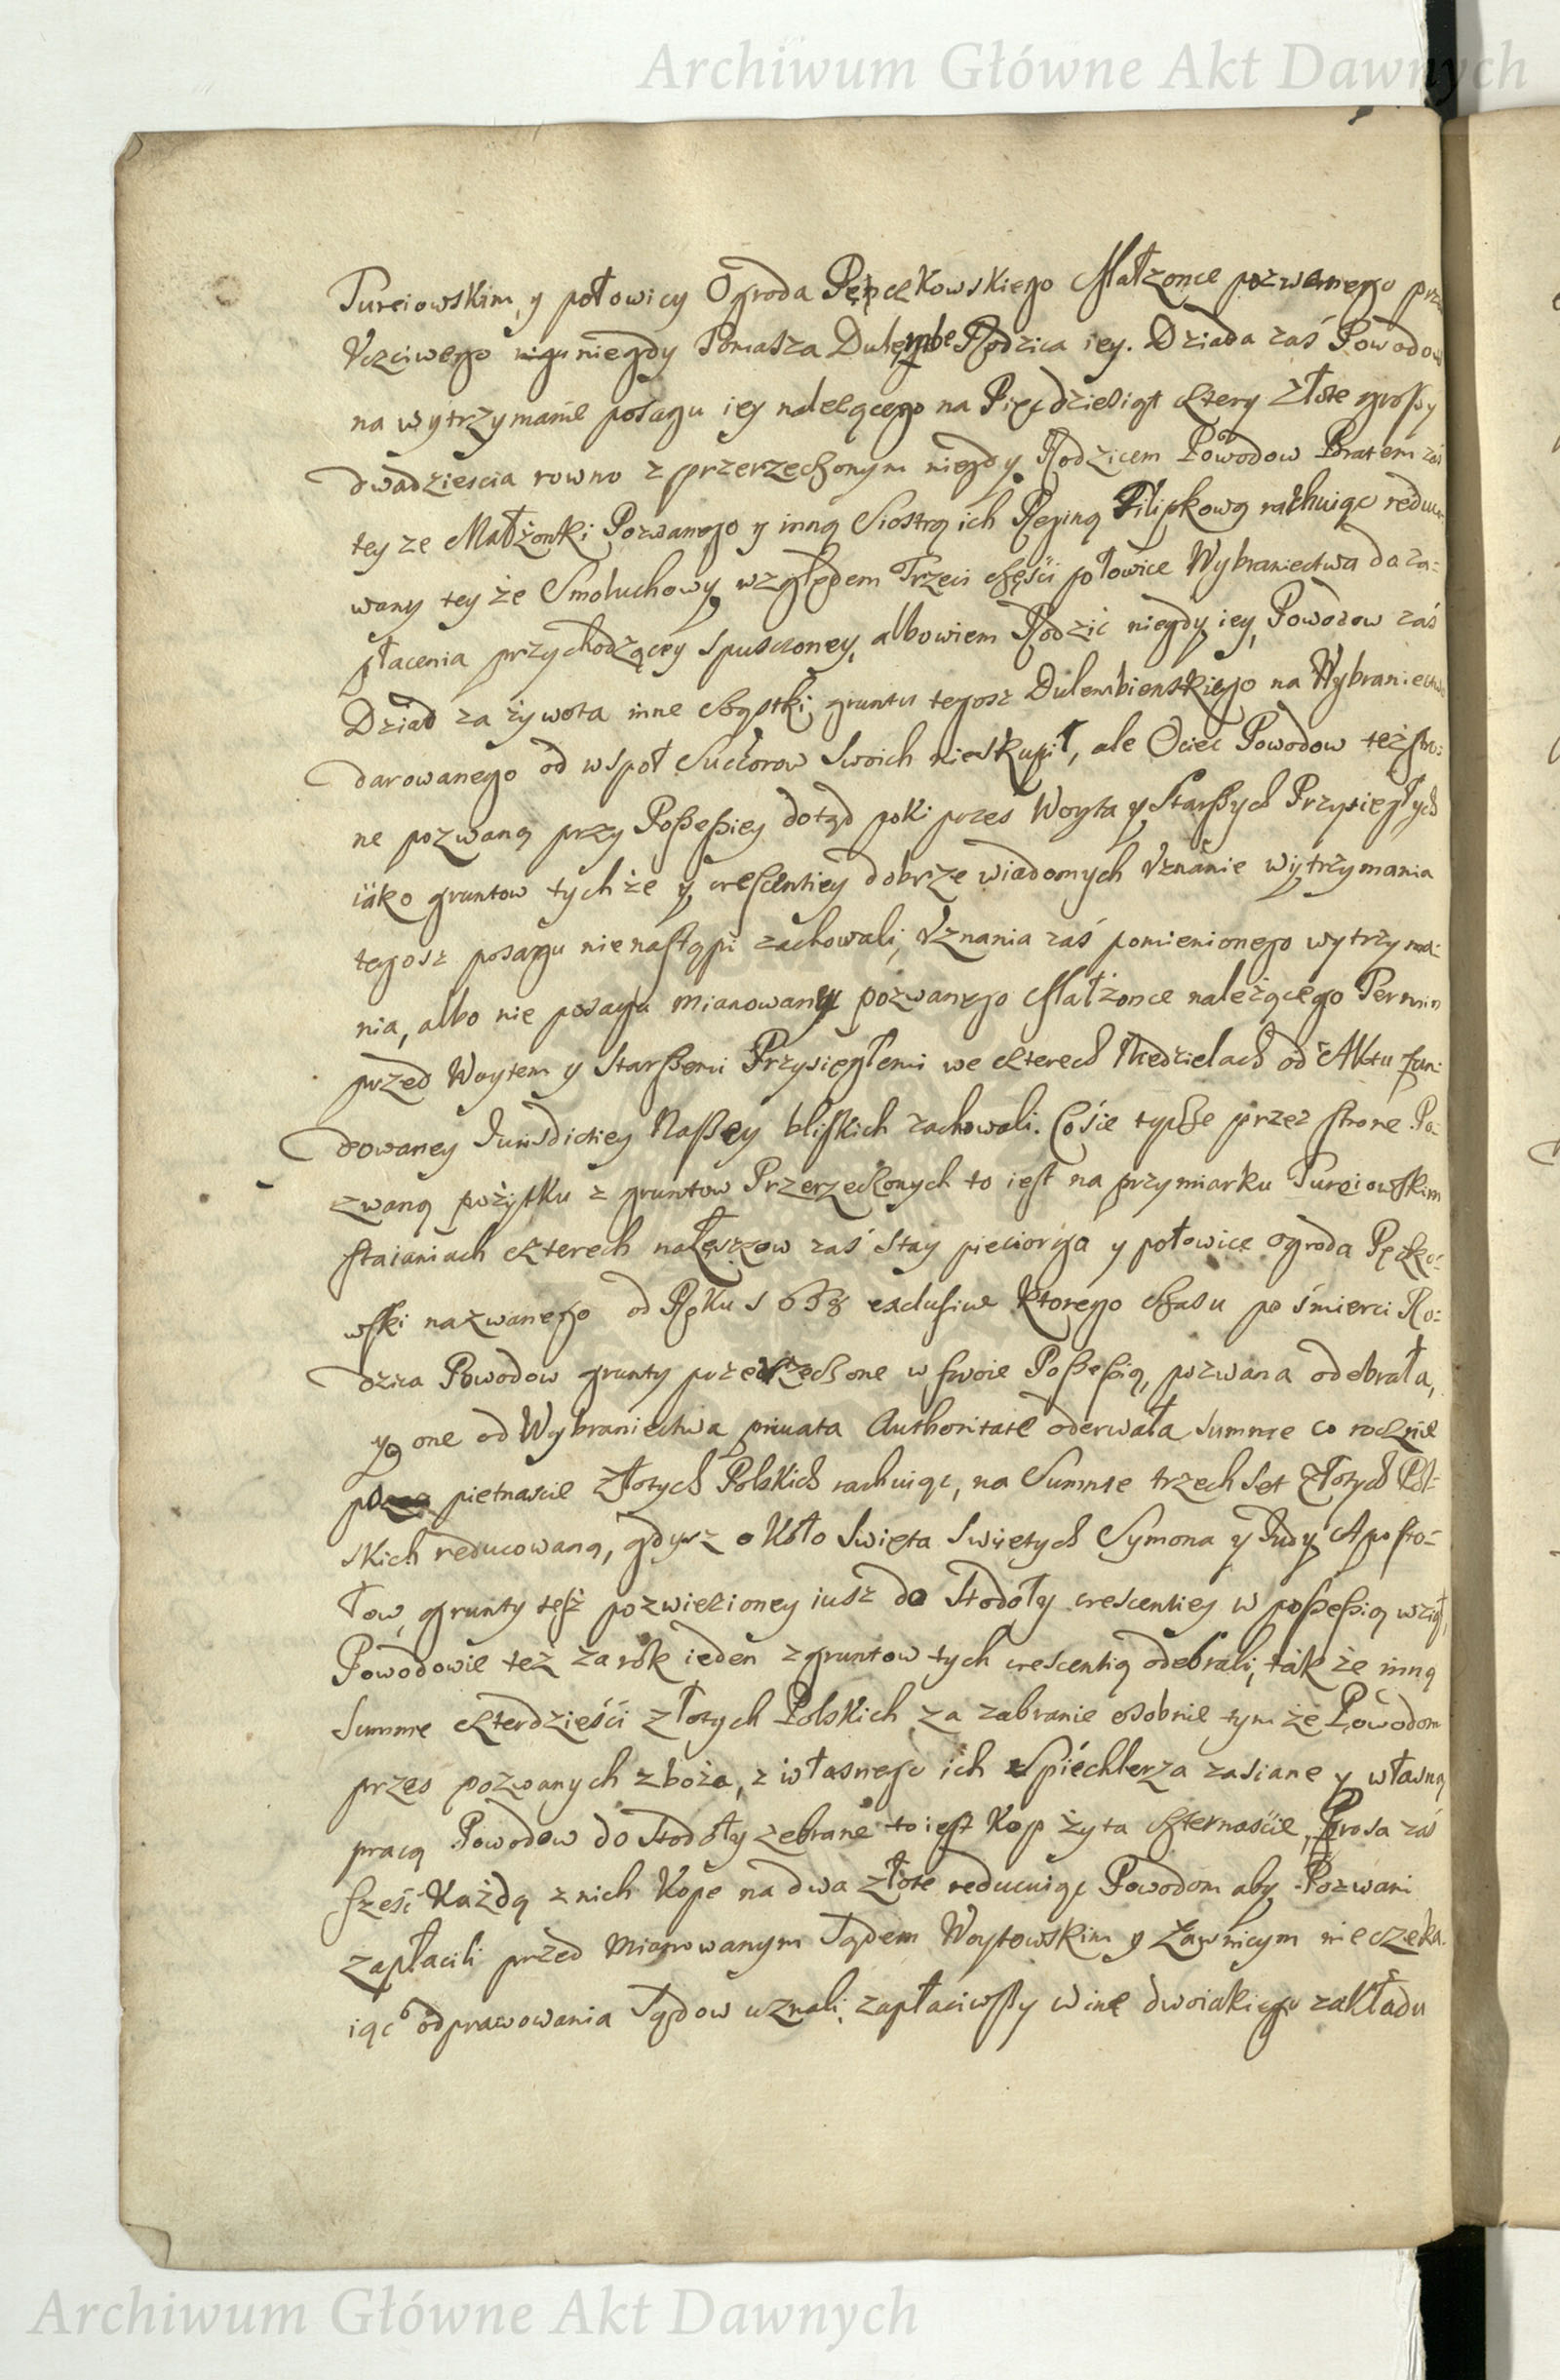 Archiwum Główne Akt Dawnych
Turciowskim, y połowicy Ogroda Pępczkowskiego Małżonce pozwanego prze
Vczciwego niegdy Tomasza Dulembe Rodzica iey. Dziada zaś Powodow
na wytrzymanie posagu iey nalezącego na Pięcdziesiąt cztery złote groszy
dwadziescia rowno z przerzeczonym niegdy Rodzicem Powodow Bratem zaś
tey ze Małżonki Pozwanego y inną Siostrą ich Reginą Filipkową rachuiąc reduco-
wany tey że Smoluchowy względem Trzeci części połowice Wybraniectwa do za-
płacenia przychodzącey spusczoney, albowiem Rodzic niegdy iey, Powodow zaś
Dziad za żywota inne cząstki gruntu tegosz Dulembienskiego na Wybraniectwo
darowanego od wspoł Suczorow Swoich nieskupił, ale Ociec Powodow też stro-
ne pozwaną przy Possessiey dotąd poki przes Woyta y Starszych Przysięgłych
iáko gruntow tych że y crescentiey dobrze wiadomych Vznanie wytrzymania
tegosz posagu nienastąpi zachowali, Vznania zaś pomienionego wytrzyma-
nia, albo nie posagu mianowany pozwanego Małżonce należącego Termin
przed Woytem y Starszemi Przysięgłemi we czterech Niedzielach od Aktu fun-
dowaney Jurisdictiey Naszey bliskich zachowali. Coście tycze przez strone Po-
zwaną pożytku z gruntow Przerzeczonych to iest na przymiarku Turciowskim
staianiach czterech nałęszzow zaś stay pieciorga y połowice ogroda Pęczko-
wski nazwanego od Roku 1658 exclusiue ktorego czasu po śmierci Ro-
dzica Powodow grunty przerzeczone w swoie Possessią, pozwana odebrała,
y one od Wybraniectwa priuata Authoritate oderwała summe co rocznie
po pietnascie złotych Polskich rachuiąc, na Summe trzech set złotych Pol-
skich reducowaną, gdysz około Swięta Swiętych Symona y Judy Aposto-
łow, grunty tesz pozwiezioney iusz do Stodoły crescentiey w possessią wziął,
Powodowie też za rok ieden z gruntow tych crescentią odebrali, ták że inną
Summe czterdzieści złotych Polskich za zabranie osobnie tym że Powodom
przes pozwanych zboża, z własnego ich Spiechlerza zasiane y własną
pracą Powodow do Stodoły zebrane to iest Kop żyta czternaście, Prosa zaś
sześć Każdą z nich Kope na dwa złote reducuiąc Powodom aby Pozwani
zapłacili przed mianowanym Sądem Woytowskim y Ławniczym nie czeka-
iąc odprawowania Sądow uznali, zapłaciwszy wine dwoiakiego zakładu
Archiwum Główne Akt Dawnych